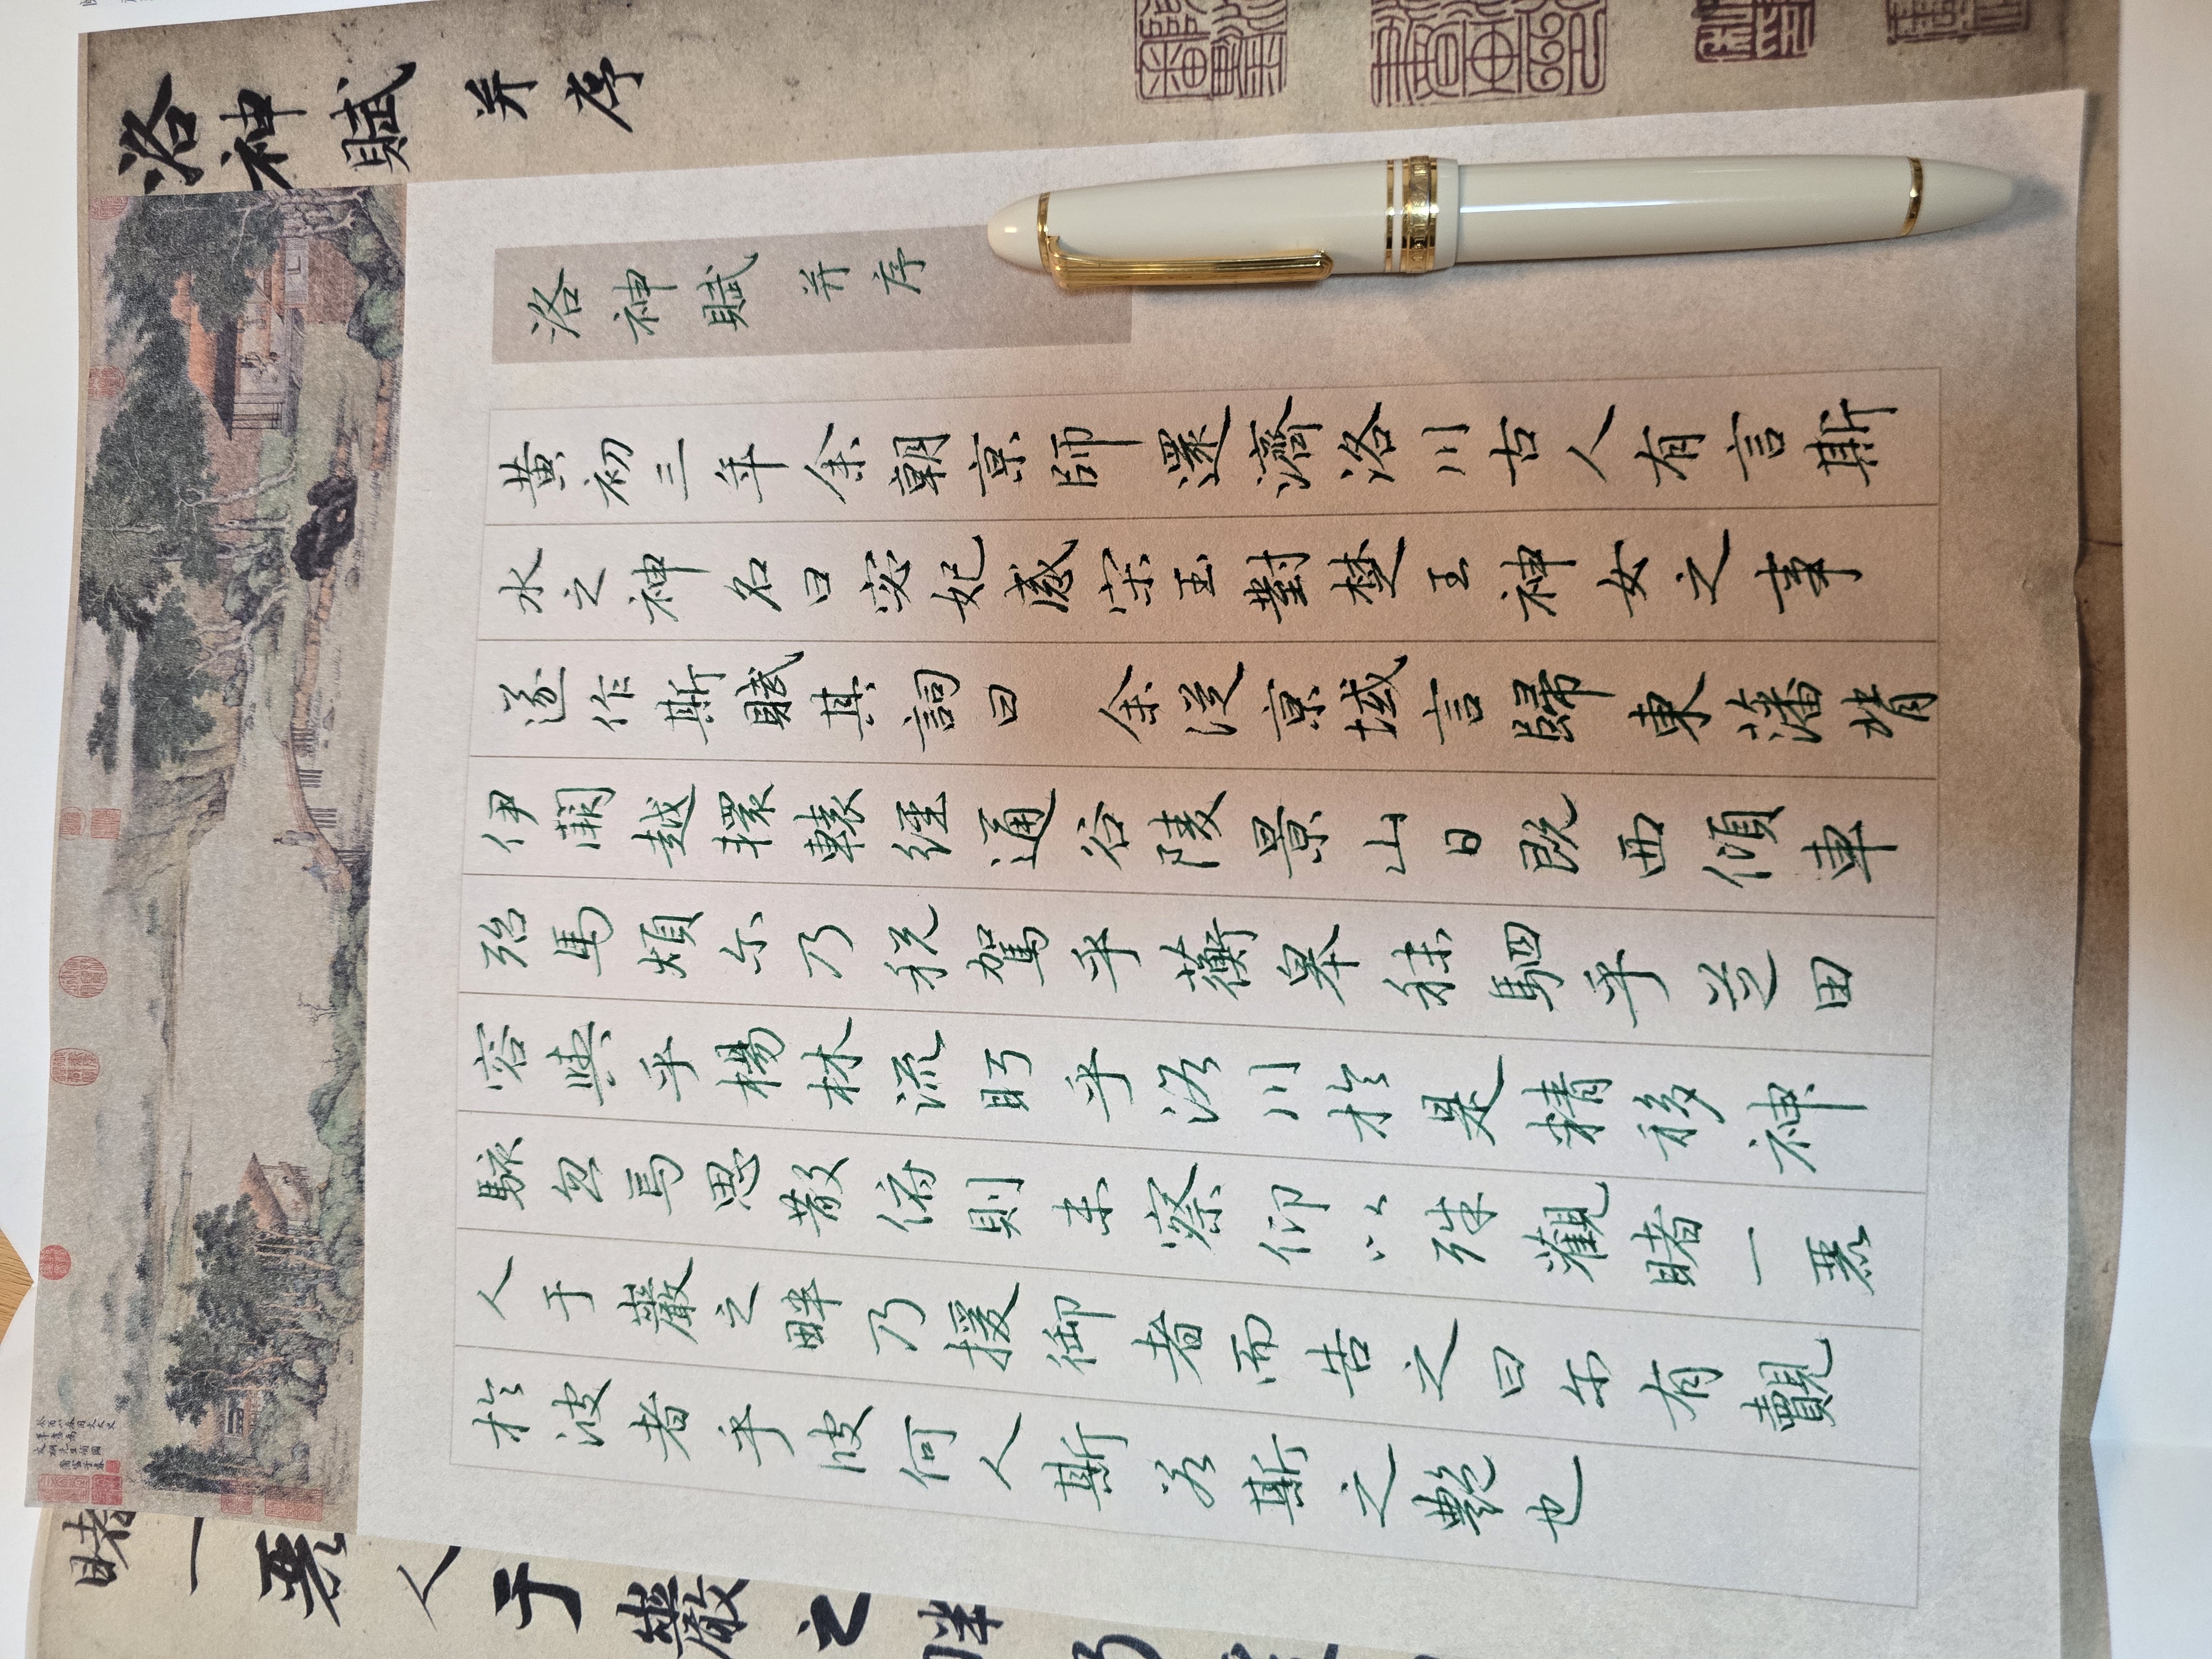 洛神賦并序
洛神賦并序
黃初三年余朝京師還濟洛川古人有言斯
水之神名曰宓妃感宋玉對楚王神女之事
遂作斯賦其詞曰 余從京域言歸東藩背
伊闕越轘轅經通谷陵景山日既西傾車
殆馬煩尒乃稅駕乎蘅皋秣駟乎芝田
容與乎楊林流眄乎洛川於是精移神
駭忽焉思散俯則未察仰以殊觀睹一麗
人于巖之畔乃援御者而告之曰尒有覿
於彼者乎彼何人斯若斯之艷也
睹一麗人于巖之畔乃